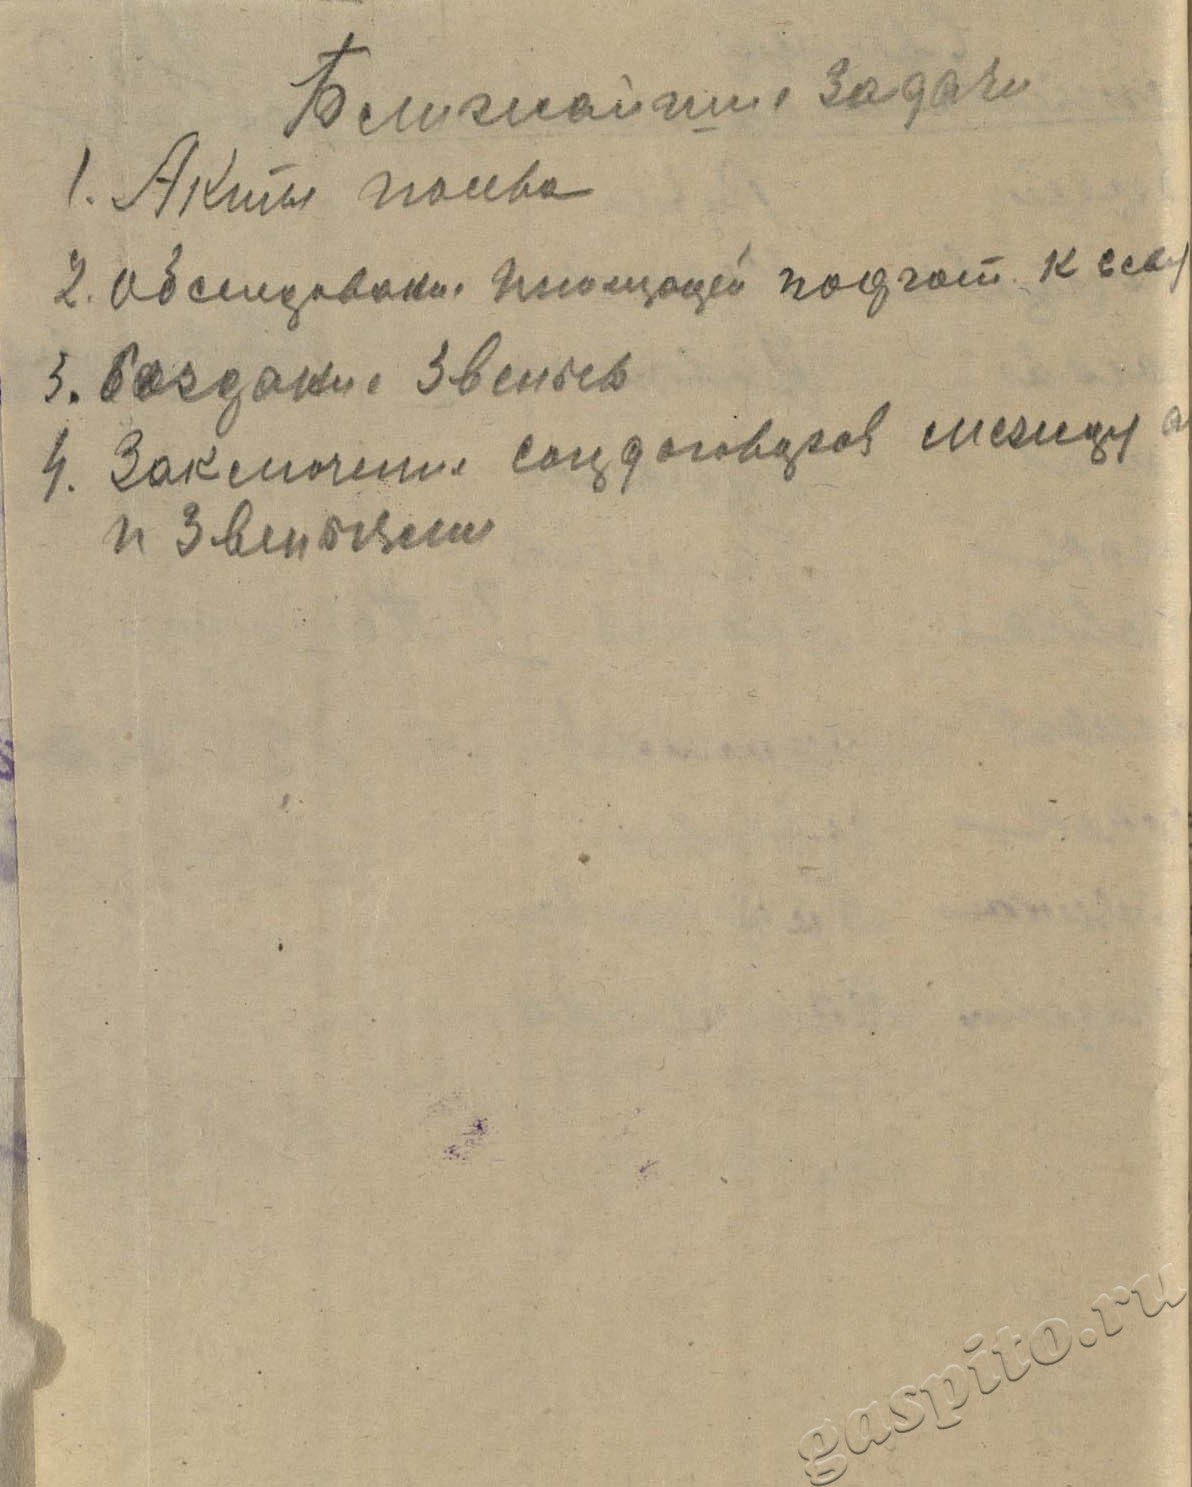 Ближайшие задачи
1. Акты посева
2. Обследование площадей подгот. к севу
3. Создание Звеньев
4. Заключение соцдоговоров между
и Звеньями
gaspito.ru